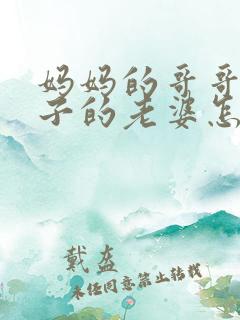 妈妈的哥哥
子的老婆怎
戴盔
未经同意禁止转载